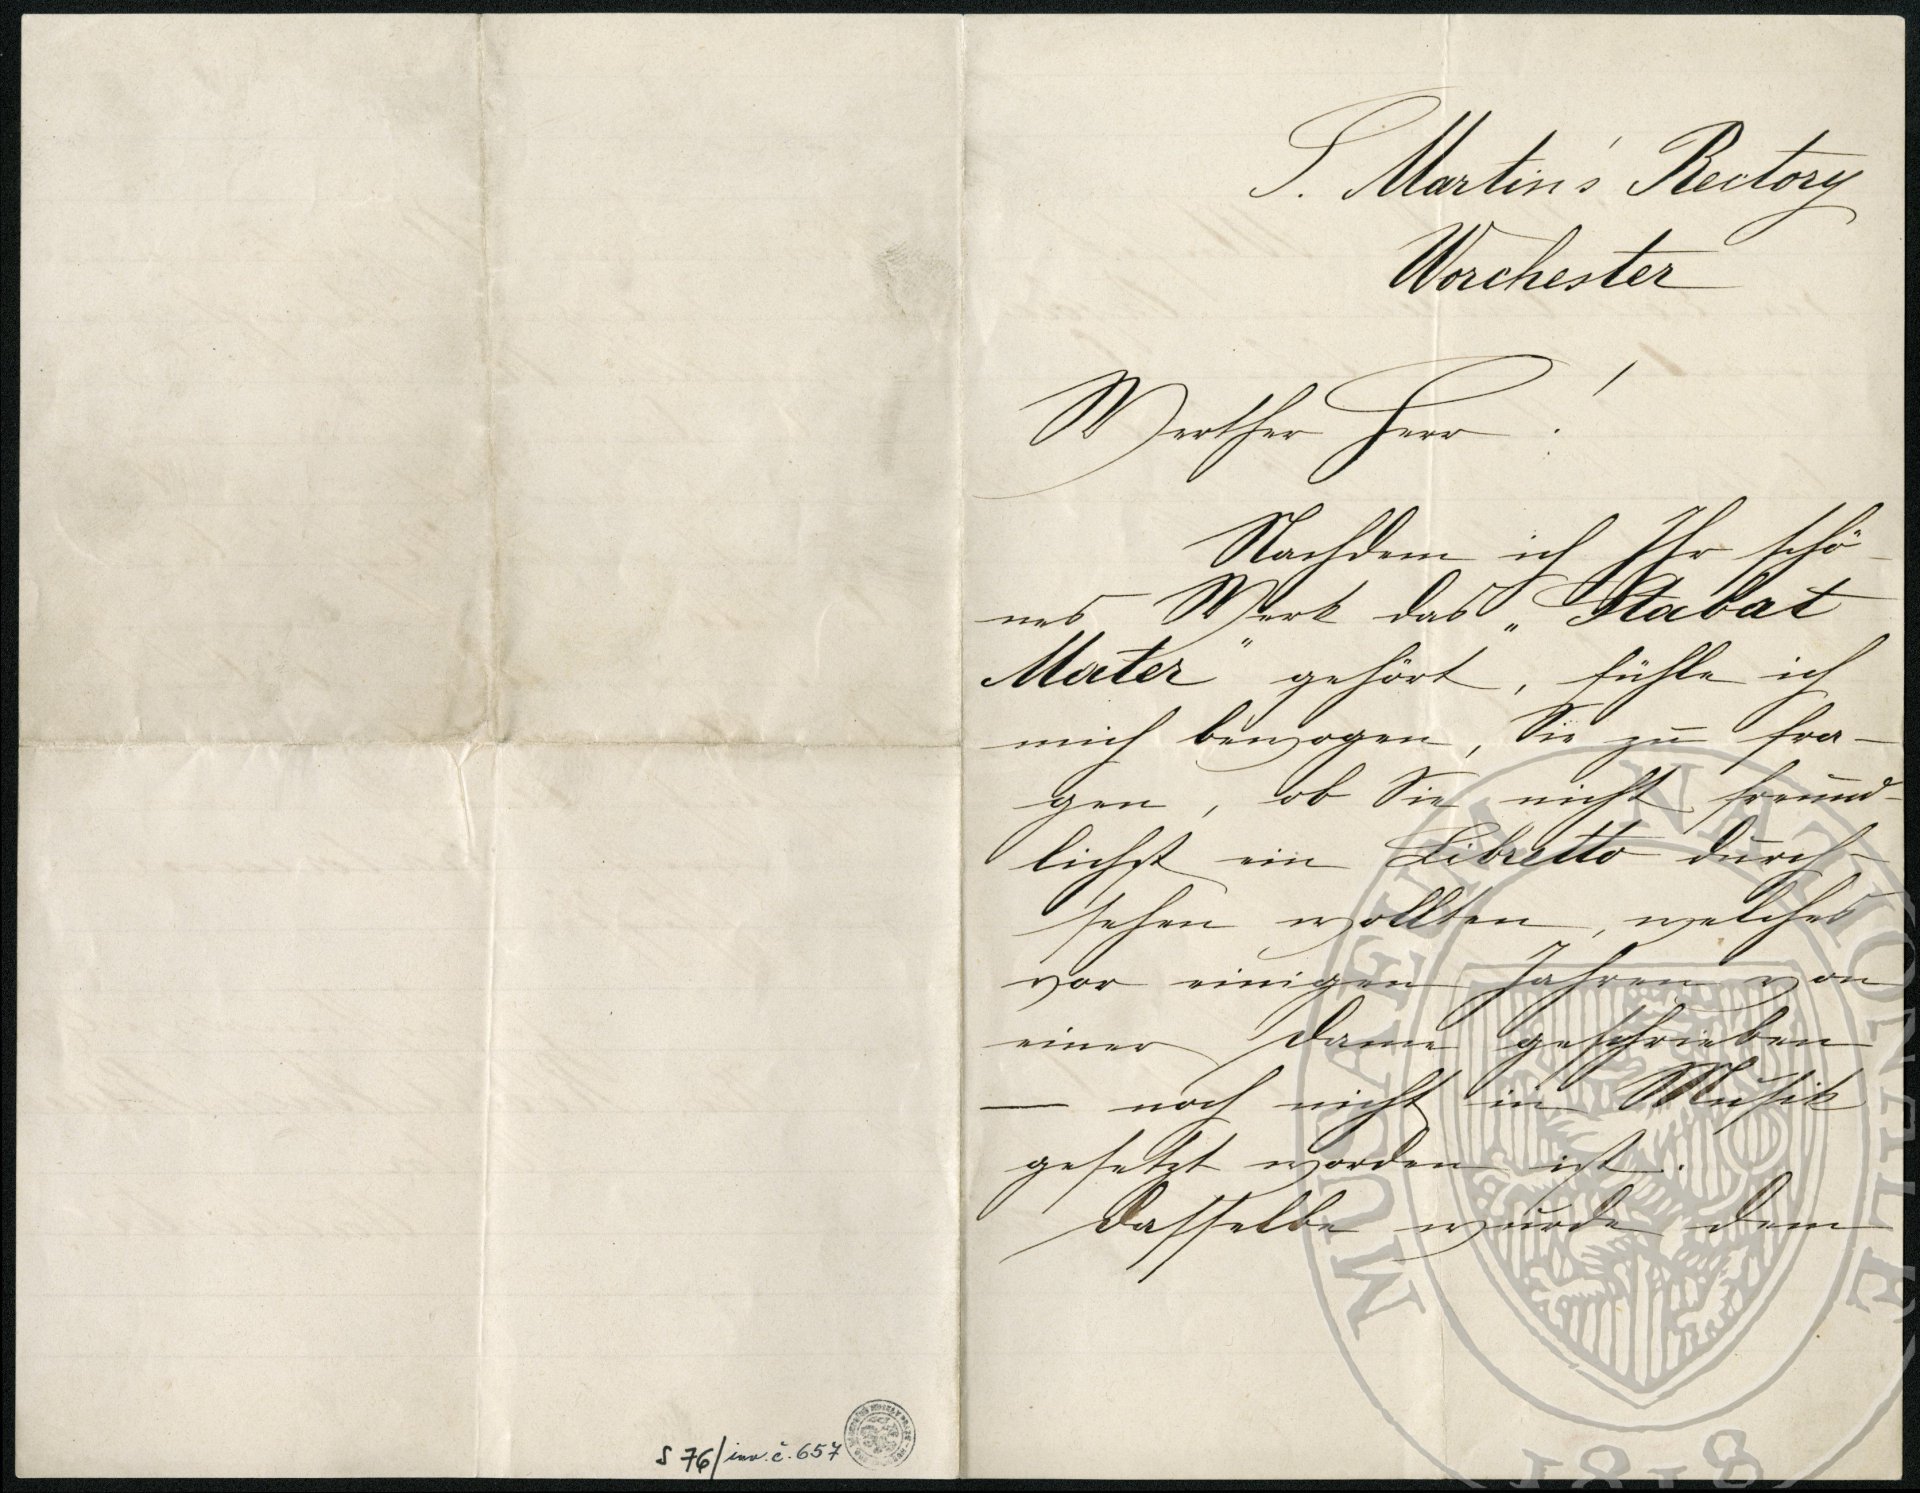 S. Martin's Rectory
Worchester
Werther Herr!
Nachdem ich Ihr schö-
nes Werk das „Stabat
Mater" gehört, fühle ich
mich bewogen, Sie zu fra-
gen, ob Sie nicht freund-
lichst ein Libretto durch-
sehen wollten, welches
vor einigen Jahren von
einer Dame geschrieben
— noch nicht in Musik
gesetzt worden ist.
Dasselbe wurde dem
S 76/inv. č. 657
MUSAEUM NATIONALE
1818